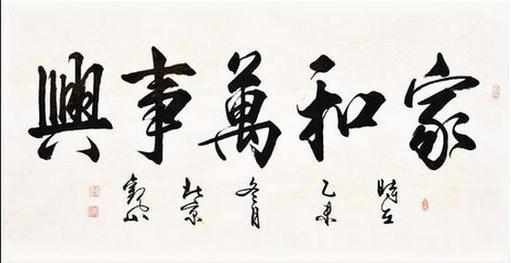 家和萬事興
時在
乙未
冬月
北京